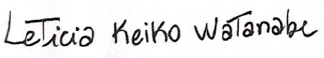 Leticia Keiko Watanabe